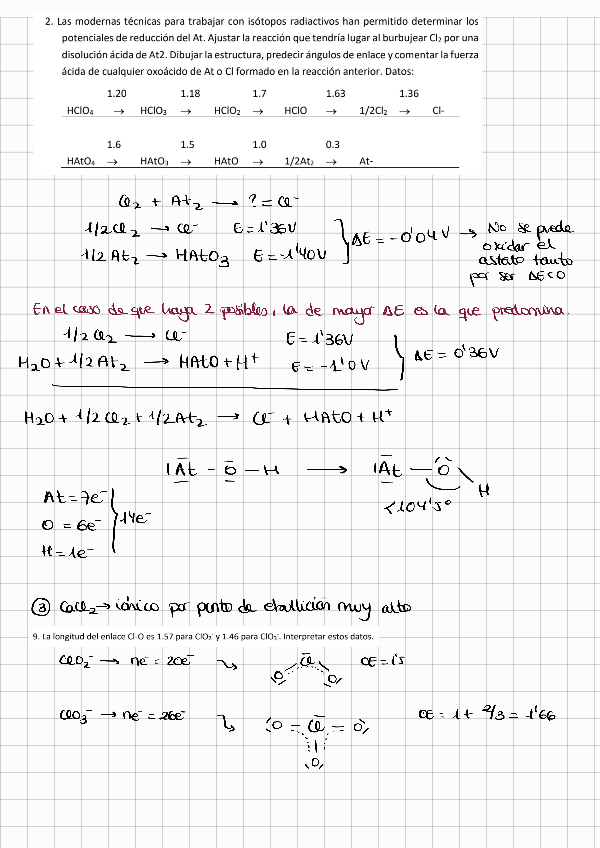 2. Las modernas técnicas para trabajar con isótopos radiactivos han permitido determinar los
potenciales de reducción del At. Ajustar la reacción que tendría lugar al burbujear Cl₂ por una
disolución ácida de At2. Dibujar la estructura, predecir ángulos de enlace y comentar la fuerza
ácida de cualquier oxoácido de At o Cl formado en la reacción anterior. Datos:
1.20 1.18 1.7 1.63 1.36
HClO₄ → HClO₃ → HClO₂ → HClO → 1/2Cl₂ → Cl-
1.6 1.5 1.0 0.3
HAtO₄ → HAtO₃ → HAtO → 1/2At₂ → At-
Cl₂ + At₂ → ? = Cl⁻
1/2 Cl₂ → Cl⁻ E = 1'36V
1/2 At₂ → HAtO₃ E = -1'40V
ΔE = -0'04V → No se puede
oxidar el
astato tanto
por ser ΔE<0
En el caso de que haya 2 posibles, la de mayor ΔE es la que predomina.
1/2 Cl₂ → Cl⁻ E = 1'36V
H₂O + 1/2 At₂ → HAtO + H⁺ E = -1'0V
ΔE = 0'36V
H₂O + 1/2 Cl₂ + 1/2 At₂ → Cl⁻ + HAtO + H⁺
At - O - H → At - O
H
<104'5º
At = 7e⁻
O = 6e⁻
H = 1e⁻
14e⁻
③ CaCl₂ → iónico por punto de ebullición muy alto
9. La longitud del enlace Cl-O es 1.57 para ClO₂⁻ y 1.46 para ClO₃⁻. Interpretar estos datos.
ClO₂⁻ → ne⁻ = 20e⁻ Cl OE = 1'5
O O
ClO₃⁻ → ne⁻ = 26e⁻ O - Cl - O OE = 1 + 2/3 = 1'66
O